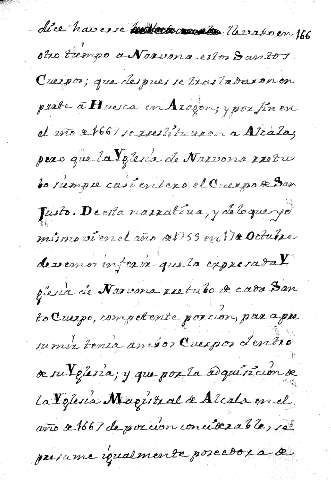 dice haverse llevado en 166
otro tiempo a Narvona estos Santos
Cuerpos; que despues se trasladaron en
parte â Huesca en Aragon; y por fin en
el año de 1661 se restituieron a Alcala,
pero que la Yglesia de Narvona retu-
bo siempre casi entero el Cuerpo de San
Justo. De esta narrativa, y de lo que yo
mismo vi en el año de 1759 en 17 de Octubre
devemos inferir que la expresada Y
glesia de Narvona retubo de cada San
to Cuerpo, competente porcion, para pre
sumir tenia ambos Cuerpos dentro
de su Yglesia; y que por la adquisicion de
la Yglesia Magistral de Alcala en el
año de 1661 de porcion considerable, se
presume igualmente poseedora de